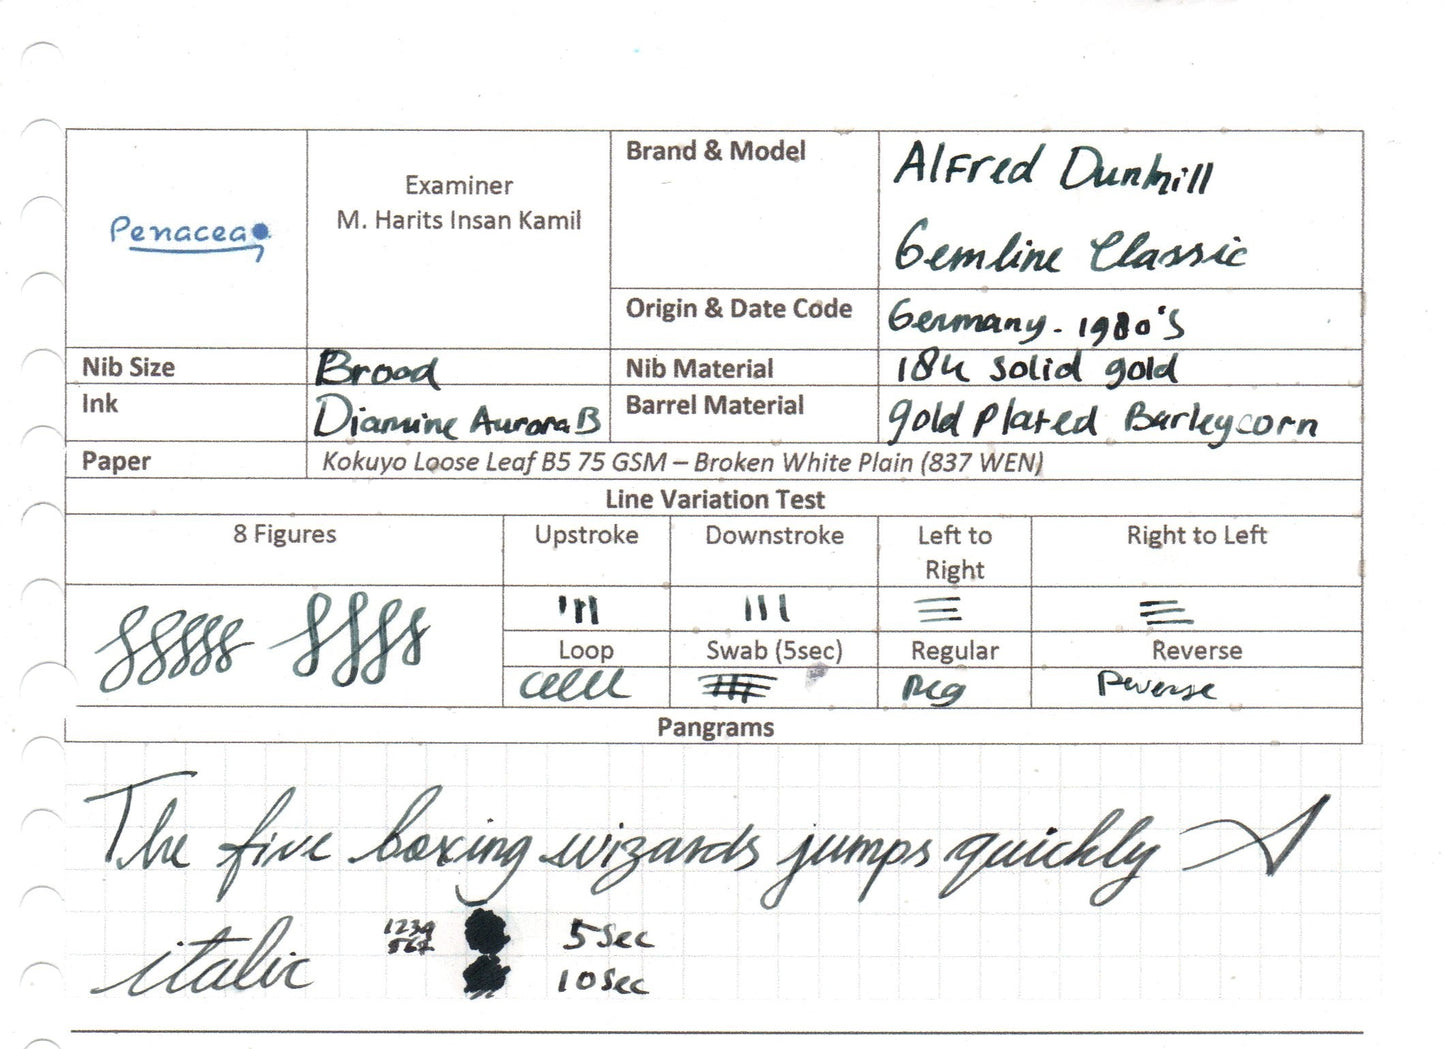 Penacea
Examiner
M. Harits Insan Kamil
Brand & Model
Alfred Dunhill
Gemline Classic
Origin & Date Code
Germany - 1980's
Nib Size
Broad
Nib Material
18k solid gold
Ink
Diamine Aurora B
Barrel Material
gold Plated Barleycorn
Paper
Kokuyo Loose Leaf B5 75 GSM – Broken White Plain (837 WEN)
Line Variation Test
8 Figures
Upstroke
Downstroke
Left to
Right
Right to Left
Loop
Swab (5sec)
Regular
Reverse
Reg
Reverse
Pangrams
The five boxing wizards jumps quickly
italic
1234
567
5 sec
10 sec